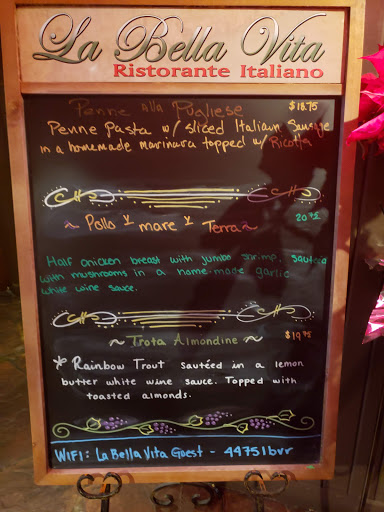 La Bella Vita
Ristorante Italiano
Penne alla Pugliese $18.75
Penne Pasta w/ sliced Italian Sausage
in a homemade marinara topped w/ Ricotta
~ Pollo y mare y Terra ~ 20.75
Half chicken breast with jumbo shrimp, sauteed
with mushrooms in a home-made garlic
white wine sauce.
~ Trota Almondine ~ $19.75
Rainbow Trout sautéed in a lemon
butter white wine sauce. Topped with
toasted almonds.
WIFI: La Bella Vita Guest - 44751bvr